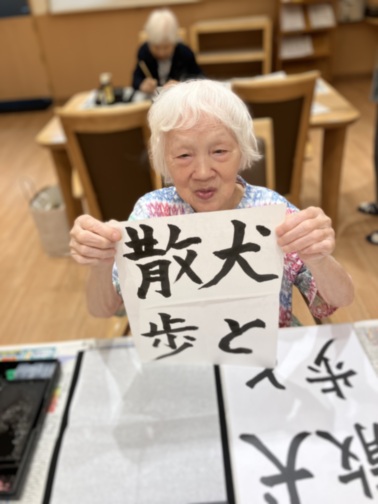 犬と
散歩
犬と
散歩